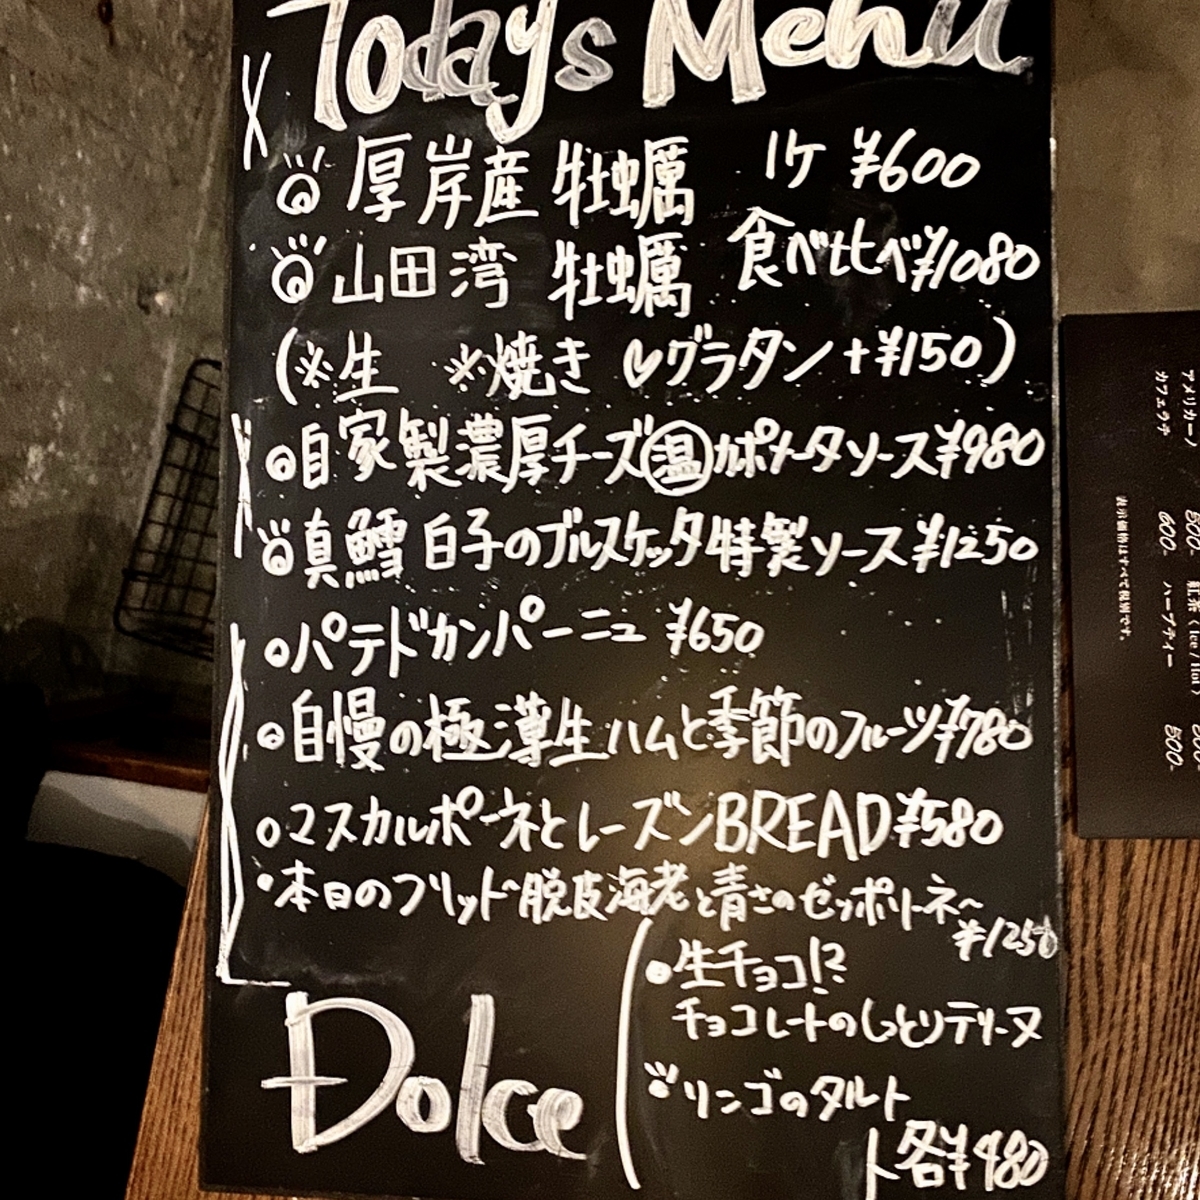 Todays Menu
◎厚岸産 牡蠣 1ケ ¥600
◎山田湾 牡蠣 食べ比べ¥1080
(※生 ※焼き ♡グラタン+¥150)
◎自家製濃厚チーズ㊩カポナータソース¥980
◎真鱈 白子のブルスケッタ特製ソース¥1250
○パテドカンパーニュ ¥650
◎自慢の極薄生ハムと季節のフルーツ¥780
○マスカルポーネとレーズンBREAD¥580
・本日のフリット 脱皮海老と青さのゼッポリーネ〜
¥1250
Dolce
・生チョコ!?
チョコレートのしっとりテリーヌ
リンゴのタルト
ト各¥480
アメリカーノ 500.
カフェラテ 600. ハーブティー 500.
紅茶 (Ice / Hot)
表示価格はすべて税別です。